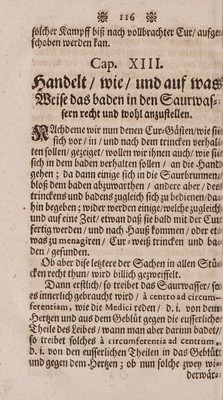 116
solcher Kampff biß nach vollbrachter Cur/ aufge-
schoben werden kan.
Cap. XIII.
Handelt/ wie/ und auf was
Weise das baden in den Saurwas-
sern recht und wohl anzustellen.
NAchdeme wir nun denen Cur-Gästen/ wie sie
sich vor/ in/ und nach dem trincken verhal-
ten sollen/ gezeiget/ wollen wir ihnen auch/ wie sie
sich in dem baden verhalten sollen/ an die Hand
gehen; Da dann einige sich in die Saurbrunnen/
bloß dem baden abzuwarthen/ andere aber/ deß
trinckens und badens zugleich sich zu bedienen/ da-
hin begeben; wider werden einige/ welche zugleich
und auf eine Zeit/ etwan daß sie bald mit der Cur
fertig werden/ und nach Hauß kommen/ oder et-
was zu menagiren/ Cur-weiß trincken und ba-
den/ gefunden.
Ob aber diß letztere der Sachen in allen Stü-
cken recht thun/ wird billich gezweiffelt.
Dann erstlich/ so treibet das Saurwasser/ so
es innerlich gebraucht wird/ à centro ad circum-
ferentiam, wie die Medici reden/ d. i. von dem
Hertzen und aus dem Geblüt gegen die eusserliche
Theile des Leibes/ wann man aber darinn badet/
so treibet solches à circumferentia ad centrum,
d. i. von den eusserlichen Theilen in das Geblüt
und gegen dem Hertzen; ob nun solche zwey wi-
derwär-